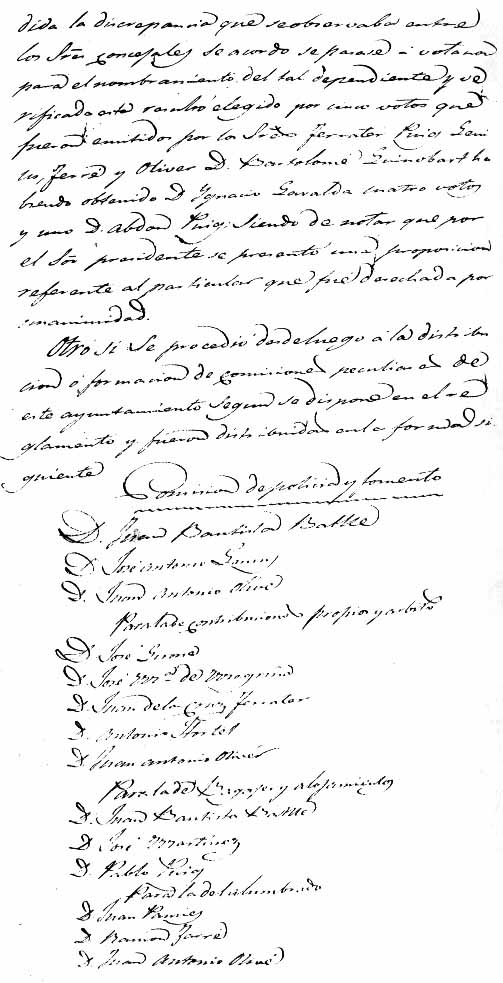 dida la discrepancia que se observaba entre
los Sres Concejales se acordo se pasase á votacion
para el nombramiento del tal dependiente y ve
rificada esta resultó elegido por cinco votos que
fueron emitidos por los Sres Ferrater Puig
Ferré y Oliver D. Bartolomé Guinobart ha
biendo obtenido D Ignacio Gavalda cuatro votos
y uno D. Abdon Puig: Siendo de notar que por
el Sor presidente se presentó una proposicion
referente al particular que fue desechada por
unanimidad.
Otro si Se procedió desde luego á la distribu
cion ó formacion de comisiones peculiares de
este ayuntamiento segun se dispone en el re
glamento y fueron distribuidas en la forma si
guiente
Comision de policia y fomento
D. Juan Bautista Batlle
D. José Antonio
D. Juan Antonio Olivé
Para la de contribuciones propios y arbitrs
D. José
D. José Ma de
D. Juan de la Cruz Ferrater
D. Antonio
D. Juan Antonio Olivér
Para la de Bagajes y alojamientos
D. Juan Bautista Batlle
D. José Martinez
D. Pablo Puig
Para la del alumbrado
D. Juan Pamies
D. Ramon Farré
D. Juan Antonio Olivé